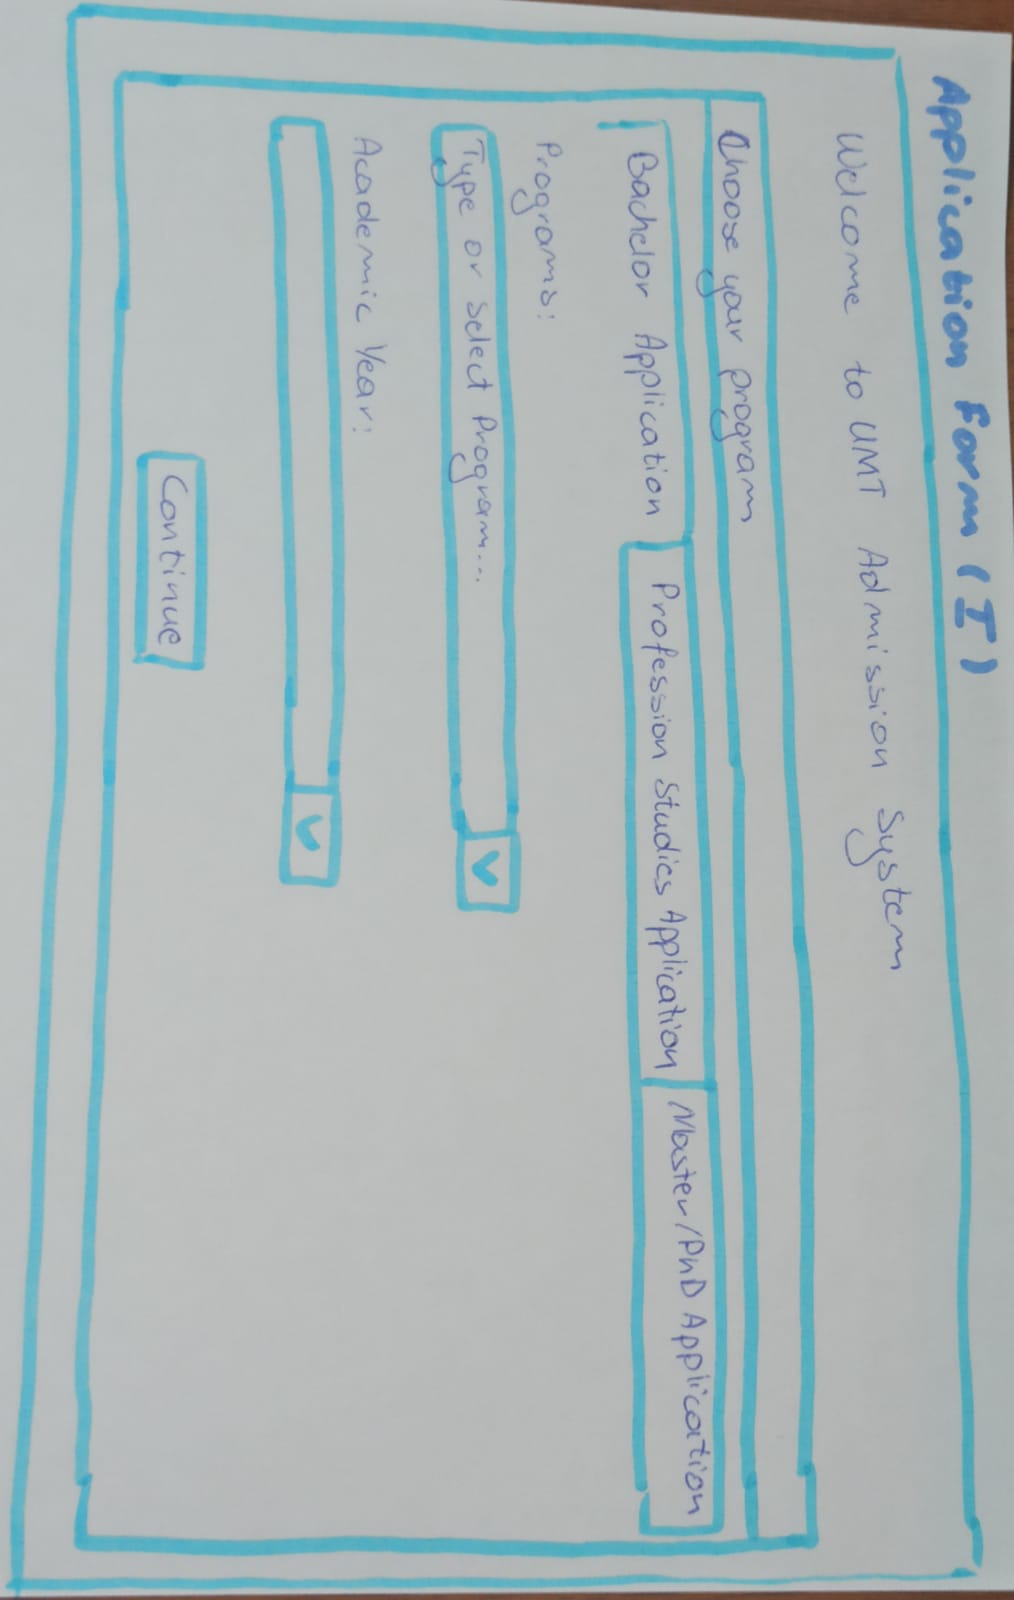 Application Form (I)
Welcome to UMT Admission System
Choose your program
Bachelor Application Profession Studies Application Master/PhD Application
Programs:
Type or select Program...
Academic Year:
Continue